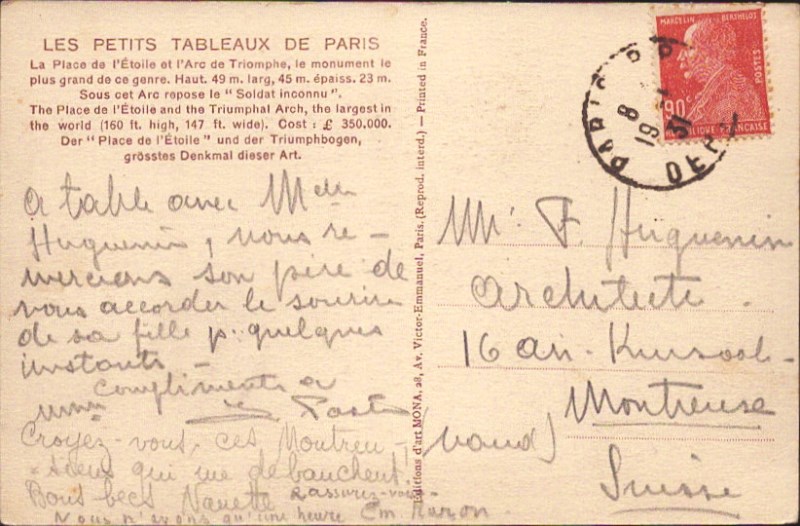 LES PETITS TABLEAUX DE PARIS
La Place de l'Étoile et l'Arc de Triomphe, le monument le
plus grand de ce genre. Haut. 49 m. larg, 45 m. épaiss. 23 m.
Sous cet Arc repose le "Soldat inconnu".
The Place de l'Étoile and the Triumphal Arch, the largest in
the world (160 ft. high, 147 ft. wide). Cost : £ 350.000.
Der "Place de l'Étoile" und der Triumphbogen,
grösstes Denkmal dieser Art.
A table avec Melle
Huguenin, nous re-
mercions son père de
vous accorder le sourire
de sa fille p. quelques
instants -
Compliments a
Croyez-vous, ces Montreu-
-siens qui me debauchent!
Bons becs Nanette Rassurez-vous
Nous n'avons qu'une heure Em.
Éditions d'art MONA, 28, Av. Victor-Emmanuel, Paris. (Reprod. interd.) — Printed in France.
MARCELIN BERTHELOT
POSTES
90c
RÉPUBLIQUE FRANÇAISE
PARIS R.P.
8
19 31
DEP
Mr. F. Huguenin
Architecte.
16 an. Kursaal-
Montreuse
(Vaud)
Suisse